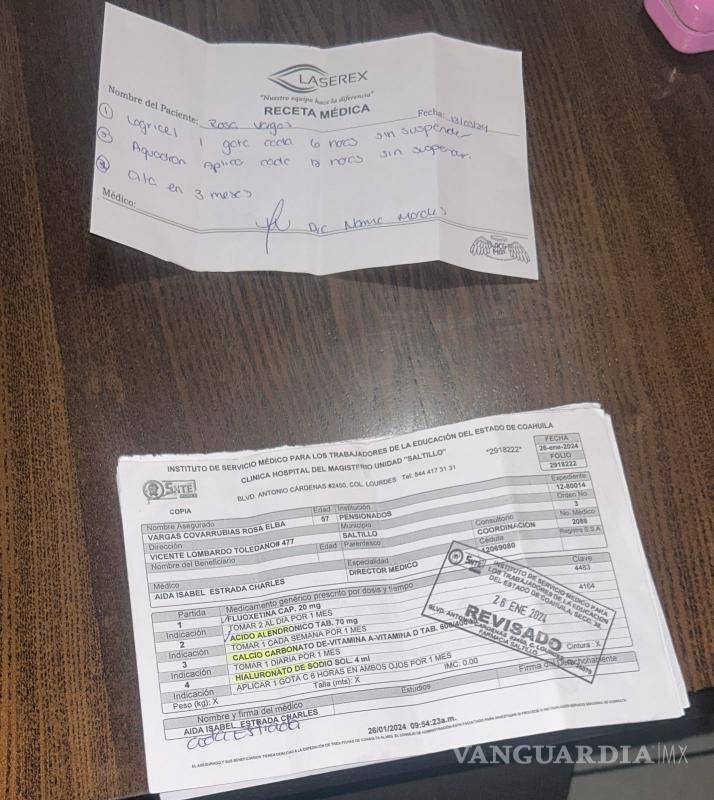 LASEREX
"Nuestro equipo hace la diferencia"
RECETA MÉDICA
Nombre del Paciente: Rosa Vargas Fecha:
① 1 gota cada 6 horas sin suspender
② Aplica cada 12 horas sin
③ cita en 3 meses
Médico:
INSTITUTO DE SERVICIO MÉDICO PARA LOS TRABAJADORES DE LA EDUCACIÓN DEL ESTADO DE COAHUILA
CLINICA HOSPITAL DEL MAGISTERIO UNIDAD "SALTILLO"
BLVD. ANTONIO CÁRDENAS #2450, COL. LOURDES Tel: 844 417 31 31
*2918222*
FECHA
26-ene-2024
FOLIO
2918222
SNTE
COPIA
Expediente
12-80014
Nombre Asegurado Edad Institución Orden No.
VARGAS COVARRUBIAS ROSA ELBA 57 PENSIONADOS 3
Dirección Municipio Consultorio No. Médico
VICENTE LOMBARDO TOLEDANO# 477 SALTILLO COORDINACION 2088
Nombre del Beneficiario Edad Parentesco Cédula Registro S.S.A
12069080
Médico Especialidad
AIDA ISABEL ESTRADA CHARLES DIRECTOR MEDICO
Partida Medicamento genérico prescrito por dosis y tiempo Clave
1 FLUOXETINA CAP. 20 mg 4483
Indicación TOMAR 2 AL DIA POR 1 MES
2 ACIDO ALENDRONICO TAB. 70 mg 4164
Indicación TOMAR 1 CADA SEMANA POR 1 MES
3 CALCIO CARBONATO DE-VITAMINA A-VITAMINA D TAB.
Indicación TOMAR 1 DIARIA POR 1 MES
4 HIALURONATO DE SODIO SOL. 4 ml
Indicación APLICAR 1 GOTA C 6 HORAS EN AMBOS OJOS POR 1 MES
Peso (kg): X Talla (mts): X IMC: 0.00 Cintura : X
SNTE
INSTITUTO DE SERVICIO MÉDICO PARA
LOS TRABAJADORES DE LA EDUCACIÓN
DEL ESTADO DE COAHUILA, SECC. 38
26 ENE 2024
REVISADO
FARMACIA SALTILLO
Nombre y firma del médico Estudios Firma del Derechohabiente
AIDA ISABEL ESTRADA CHARLES
26/01/2024 09:54:23a.m.
VANGUARDIA|MX